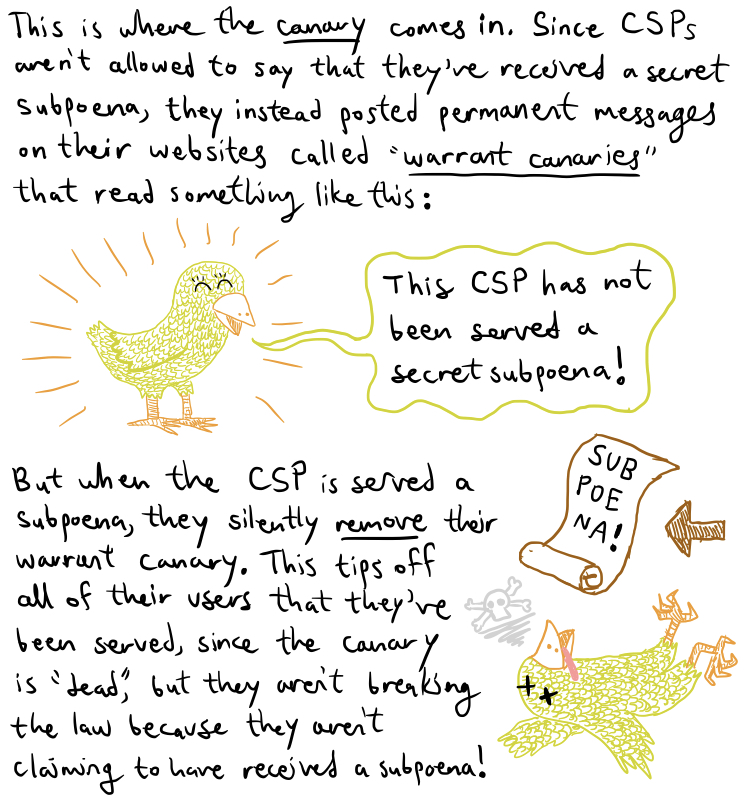 This is where the canary comes in. Since CSPs
aren't allowed to say that they've received a secret
subpoena, they instead posted permanent messages
on their websites called "warrant canaries"
that read something like this:
This CSP has not
been served a
secret subpoena!
But when the CSP is served a
subpoena, they silently remove their
warrant canary. This tips off
all of their users that they've
been served, since the canary
is "dead", but they aren't breaking
the law because they aren't
claiming to have received a subpoena!
SUB
POE
NA!